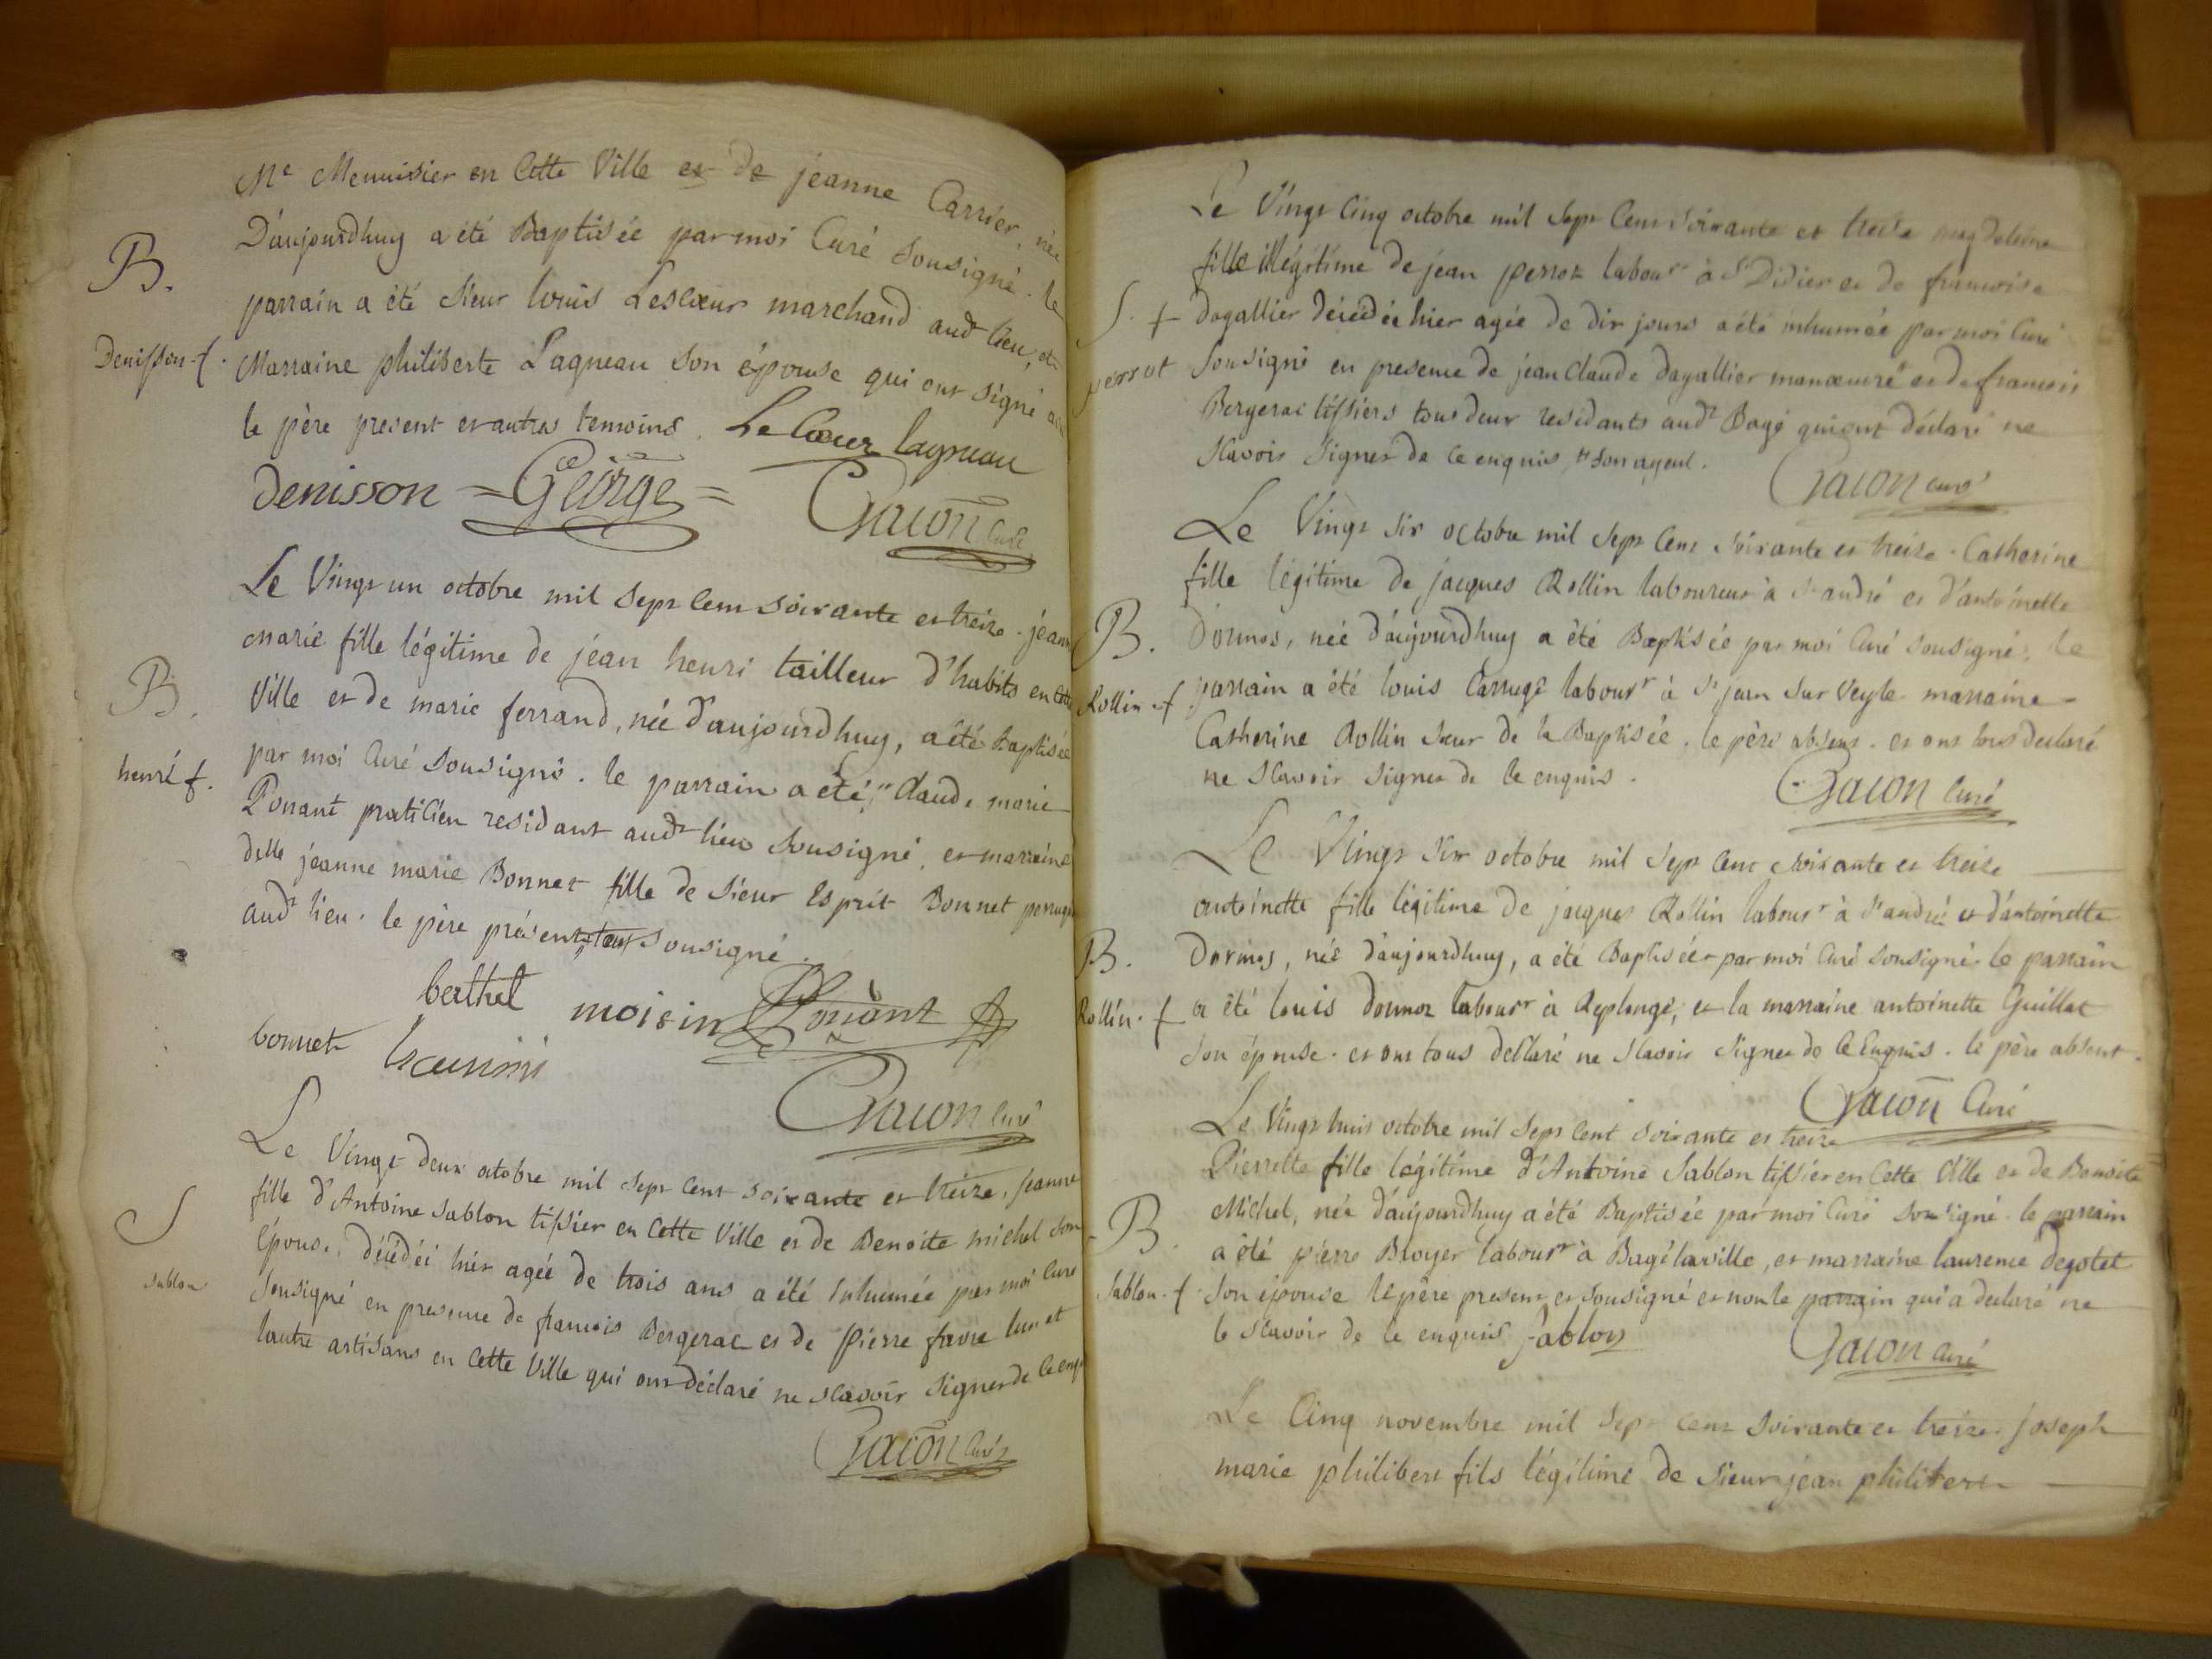 Me Menuisier en Cette Ville et de jeanne Carrier, née
D'aujourdhuy a été Baptisée par moi Curé Sousigné. le
B.
parrain a été Sieur louis Lescœur marchand audt lieu, et
Denisson f.
Marraine philiberte Lagneau son épouse qui ont signé avec
le père present et autres temoins. Le Cœur lagneau
denisson = George = Gacon Curé
Le Vingt un octobre mil Sept Cent Soixante et treize. jeanne
marie fille légitime de jean henri tailleur d'habits en Cette
B.
Ville et de marie ferrand, née d'aujourdhuy, a été baptisée
par moi Curé Sousigné. le parrain a été Claude marie
henri f.
Ponant praticien residant audt lieu Sousigné, et marraine
delle jeanne marie Bonnet fille de Sieur Esprit Bonnet
audt lieu. le père présent Sousigné.
berthet moisin Ponant
bonnet
Gacon Curé
Le Vingt deux octobre mil Sept Cent Soixante et treize, jeanne
S
fille d'Antoine Sablon tissier en Cette Ville et de Benoite michel son
Epouse, décédéé hier agée de trois ans a été Inhumée par moi Curé
Sablon
Sousigné en presence de francois Bergerac et de pierre favre lun et
lautre artisans en Cette Ville qui ont déclaré ne scavoir Signer de Ce enq
Gacon Curé
Le Vingt Cinq octobre mil Sept Cent Soixante et treize magdeleine
fille illégitime de jean perrot labourr à St Didier et de francoise
S. f
dagallier décédée hier agée de dix jours a été inhumée par moi Curé
perrot
Sousigné en presence de jean Claude dagallier manœuvre # et de francois
Bergerac tissiers tous deux residants audt Bagé qui ont déclaré ne
Scavoir Signer de Ce enquis, # son ayeul.
Gacon Curé
Le Vingt Six octobre mil Sept Cent Soixante et treize. Catherine
fille légitime de jacques Rollin laboureur à St andré et d'antoinette
B.
, née d'aujourdhuy a été Baptisée par moi Curé Sousigné. le
Rollin f
parrain a été louis Carruge labourr à St jean Sur Veyle marraine
Catherine Rollin Sœur de la Baptisée. le père absent. et ont tous declaré
ne Scavoir Signer de Ce enquis.
Gacon Curé
Le Vingt Six octobre mil Sept Cent Soixante et treize
antoinette fille légitime de jacques Rollin labourr à St andré et d'antoinette
B.
, née d'aujourdhuy, a été Baptisée par moi Curé Sousigné. le parrain
Rollin. f
a été louis labourr à Replonge, et la marraine antoinette Guillat
Son épouse. et ont tous declaré ne Scavoir Signer de Ce Enquis. le père absent.
Gacon Curé
Le Vingt huit octobre mil Sept Cent Soixante et treize
Pierrette fille légitime d'Antoine Sablon tissier en Cette Ville et de Benoite
B
Michel, née d'aujourdhuy a été Baptisée par moi Curé Sousigné. le parrain
a été pierre Broyer labourr à Bagé laville, et marraine laurence degotet
Sablon. f
Son épouse le père present et Sousigné et non le parrain qui a declaré ne
le Scavoir de Ce enquis Sablon
Gacon Curé
Le Cinq novembre mil Sept Cent Soixante et treize joseph
marie philibert fils légitime de Sieur jean philibert